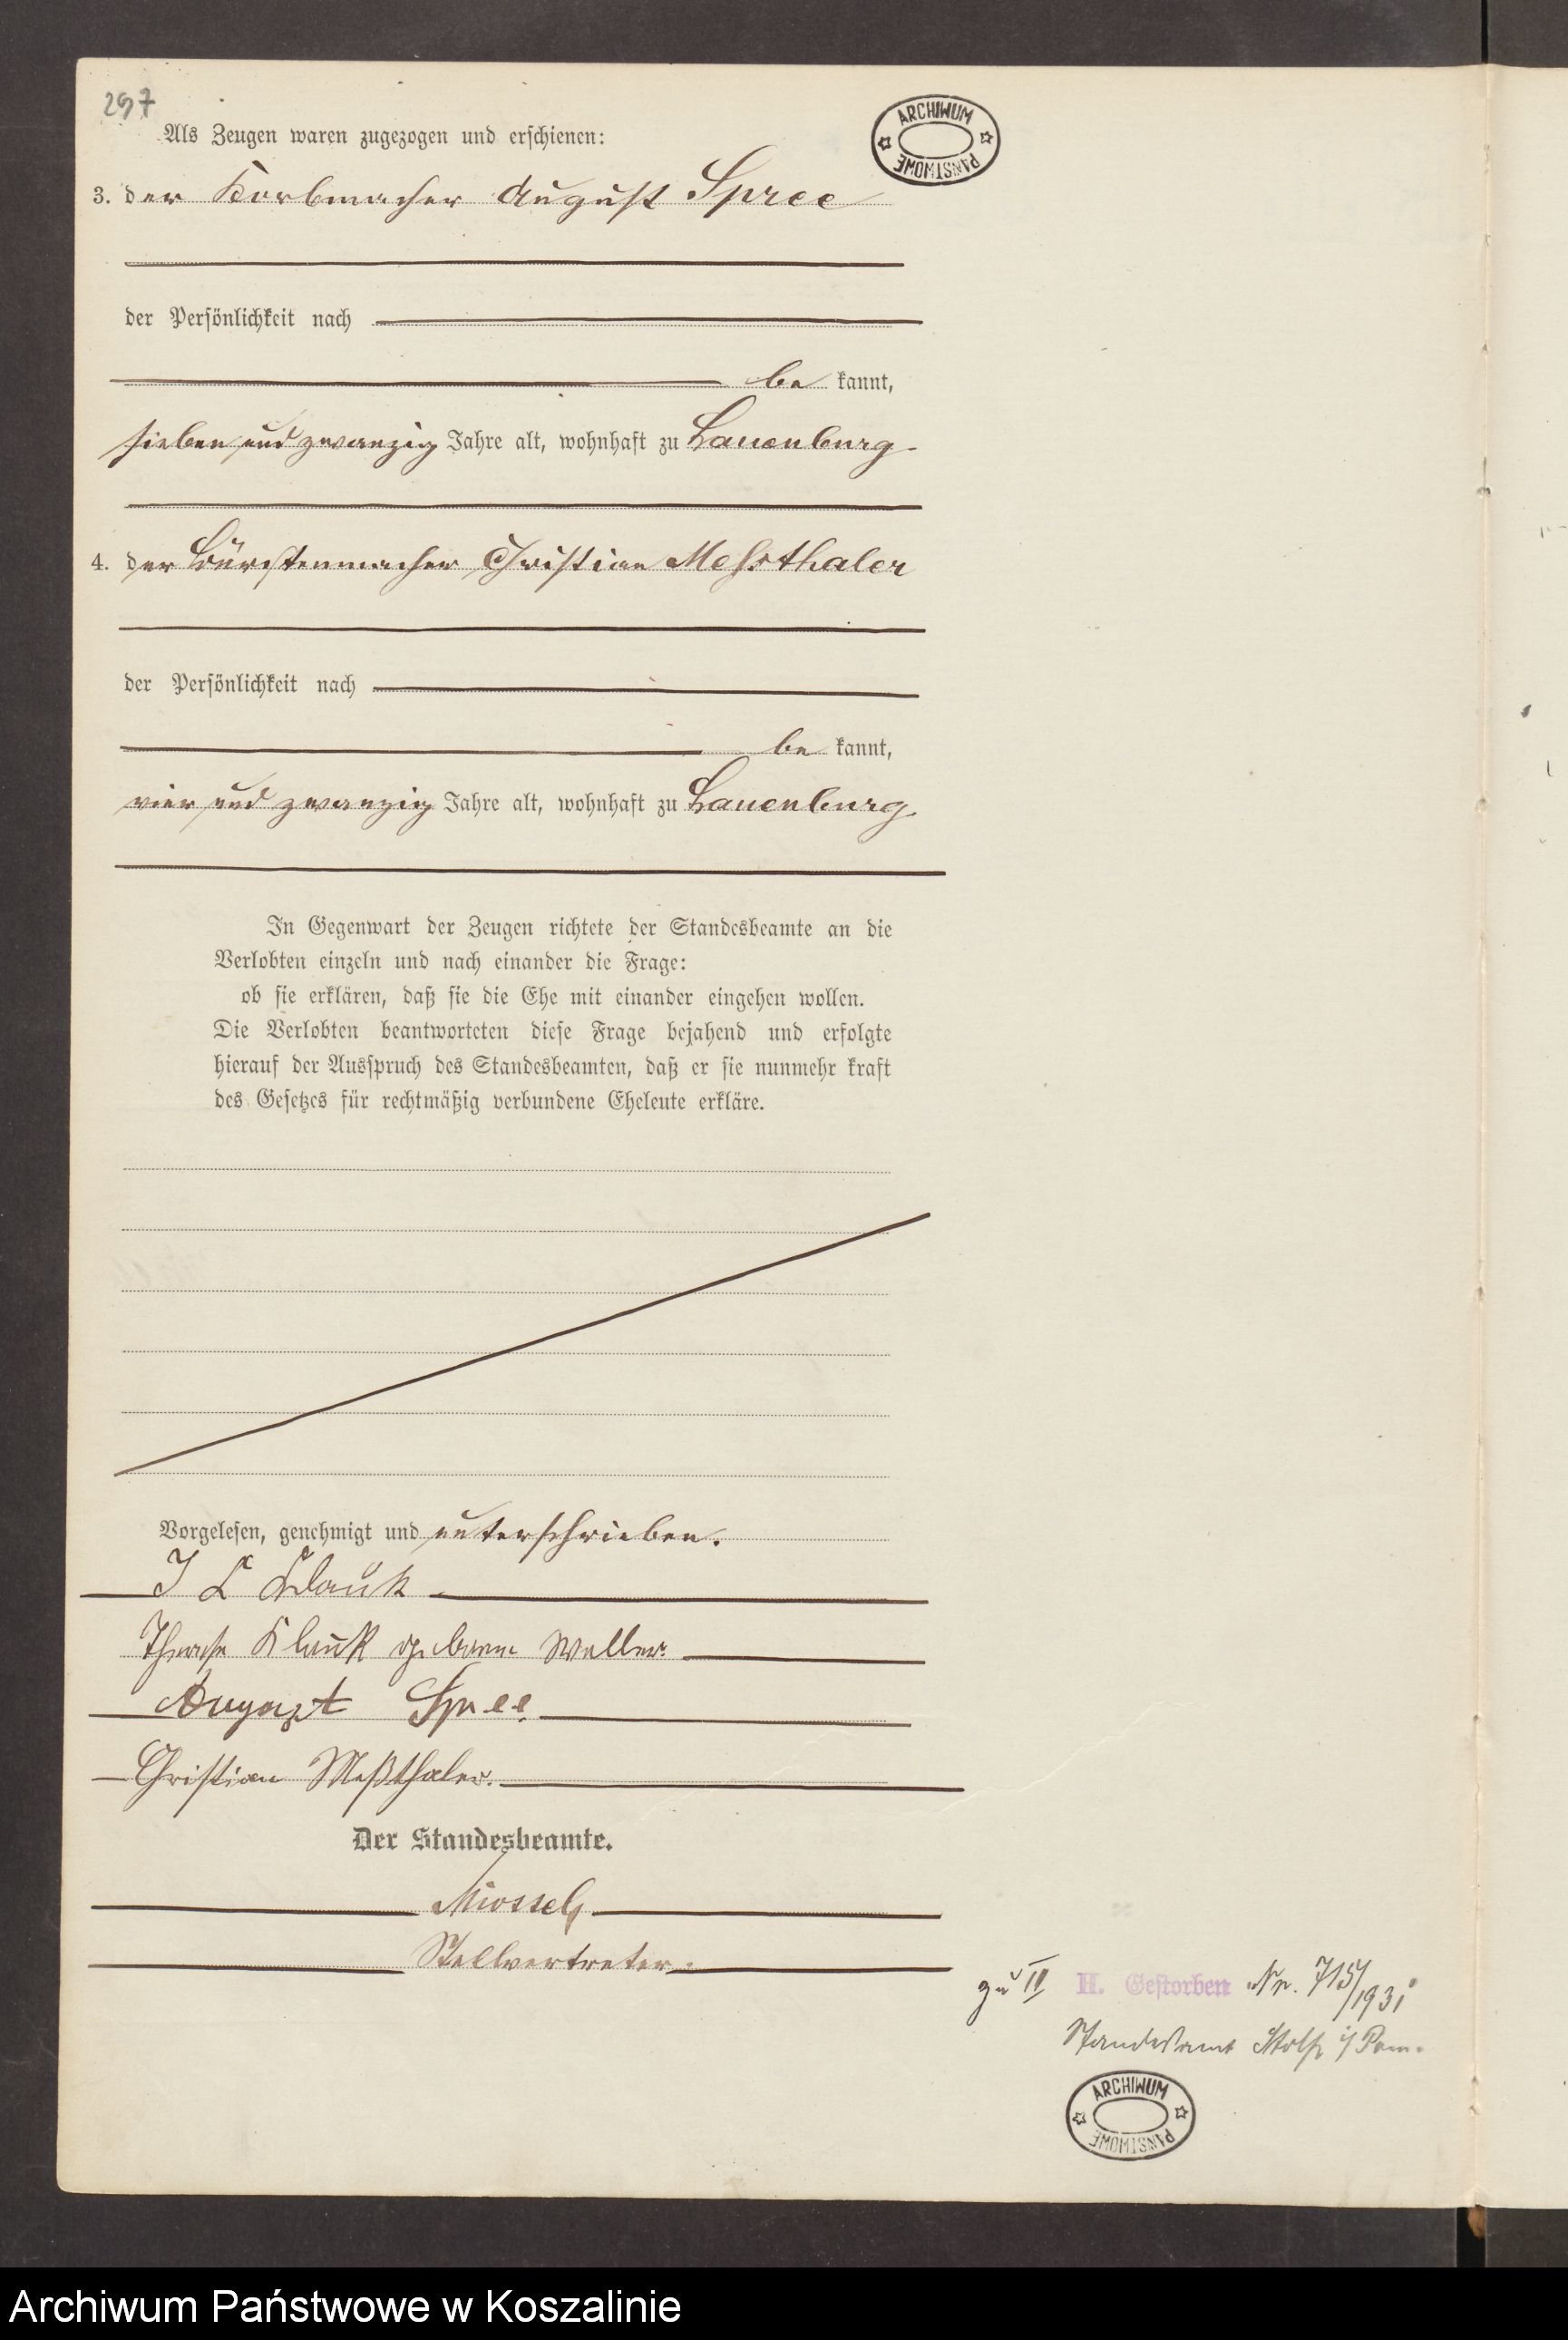 297
Als Zeugen waren zugezogen und erschienen:
ARCHIWUM PAŃSTWOWE
3. der Korbmacher August Spree
der Persönlichkeit nach
be kannt,
sieben und zwanzig Jahre alt, wohnhaft zu Lauenburg
4. der Bürstenmacher Christian Messthaler
der Persönlichkeit nach
be kannt,
vier und zwanzig Jahre alt, wohnhaft zu Lauenburg
In Gegenwart der Zeugen richtete der Standesbeamte an die
Verlobten einzeln und nach einander die Frage:
ob sie erklären, daß sie die Ehe mit einander eingehen wollen.
Die Verlobten beantworteten diese Frage bejahend und erfolgte
hierauf der Ausspruch des Standesbeamten, daß er sie nunmehr kraft
des Gesetzes für rechtmäßig verbundene Eheleute erkläre.
Vorgelesen, genehmigt und unterschrieben.
J L Klauk
Therese Klauk geborene Weller.
August Spree.
Christian Meßthaler.
Der Standesbeamte.
Stellvertreter.
zu II H. Gestorben Nr. 715/1931
Standesamt Stolp i/ Pom.
ARCHIWUM PAŃSTWOWE
Archiwum Państwowe w Koszalinie